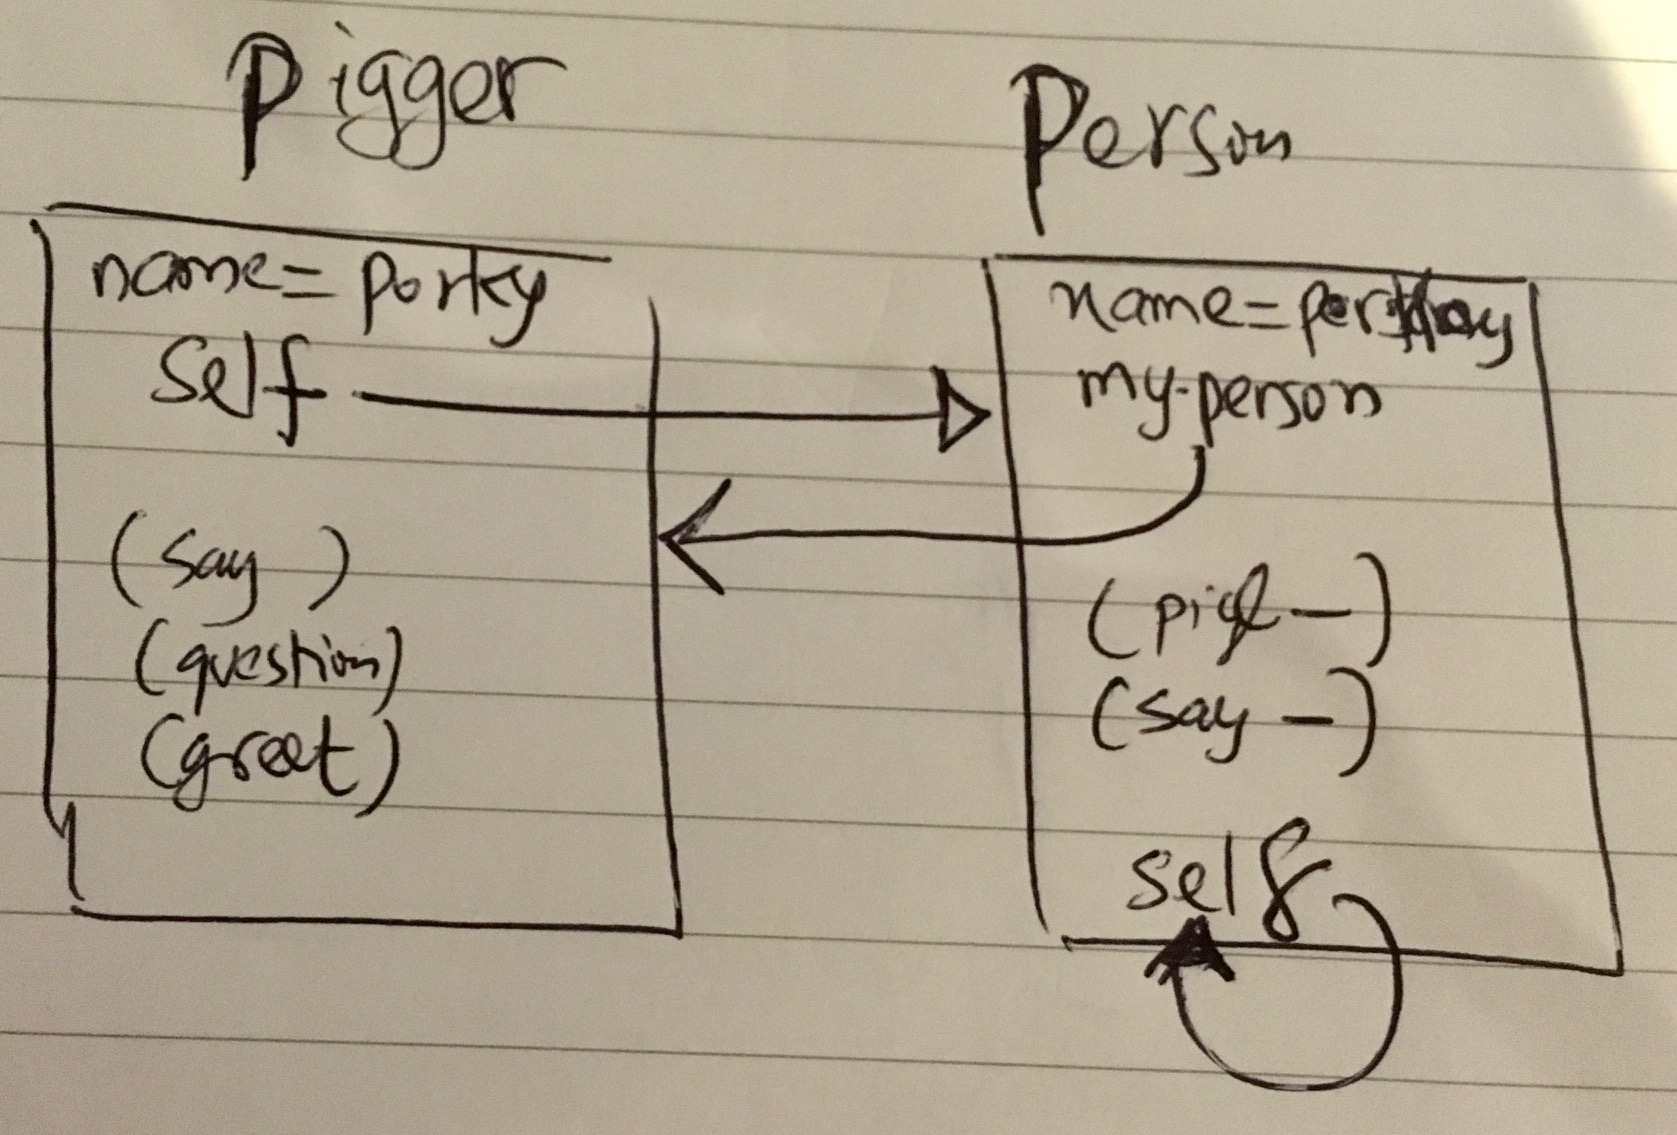 Pigger
name= porky
self
(say )
(question)
(greet)
Person
name=
my-person
(say —)
self